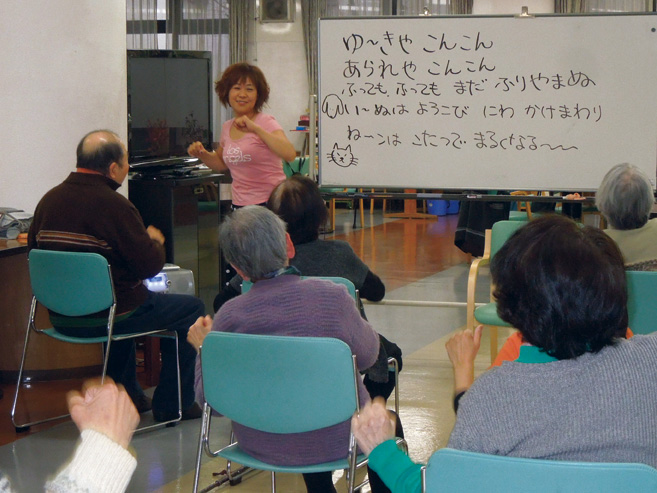 ゆ～きや こんこん
あられや こんこん
ふっても ふっても まだ ふりやまぬ
い～ぬは よろこび にわ かけまわり
ねーこは こたつで まるくなる～～
los angeles